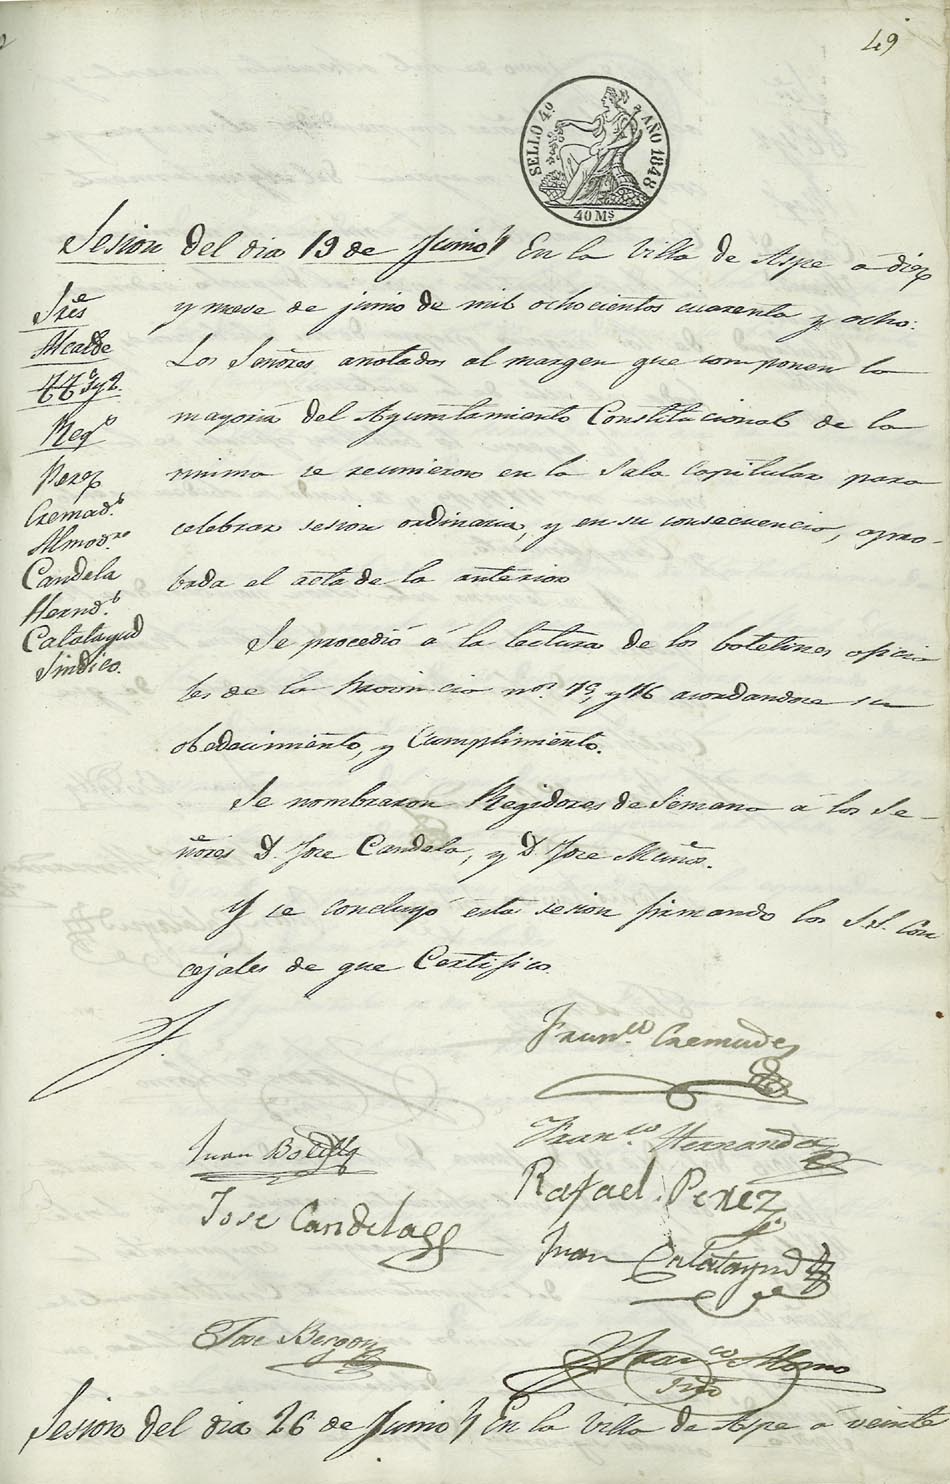 49
SELLO 4º AÑO 1848
40 Ms
Sesion del dia 19 de Junio // En la Villa de Aspe á diez
y nueve de junio de mil ochocientos cuarenta y ocho:
Los Señores anotados al margen que componen la
mayoria del Ayuntamiento Constitucional de la
misma se reunieron en la Sala Capitular para
celebrar sesion ordinaria, y en su consecuencia, apro-
bada el acta de la anterior
Sres
Alcalde
TTs 1º y 2º
Regs
Perez
Cremads
Almodro
Candela
Hernds
Calatayud
Sindico.
Se procedió á la lectura de los boletines oficia
les de la Provincia nos. 75, y 76 acordandose su
obedecimiento, y cumplimiento.
Se nombraron Regidores de Semana á los Se-
ñores D. Jose Candela, y D. Jose Muñoz.
Y se concluyó esta sesion firmando los S.S. Con
cejales de que Certifico.
Franco Cremades
Juan Botella
Franco Hernandez
Rafael Perez
Jose Candela
Juan Calatayud
Jose Bergon
Franco Alonso
Srio
Sesion del dia 26 de Junio // En la Villa de Aspe á veinte